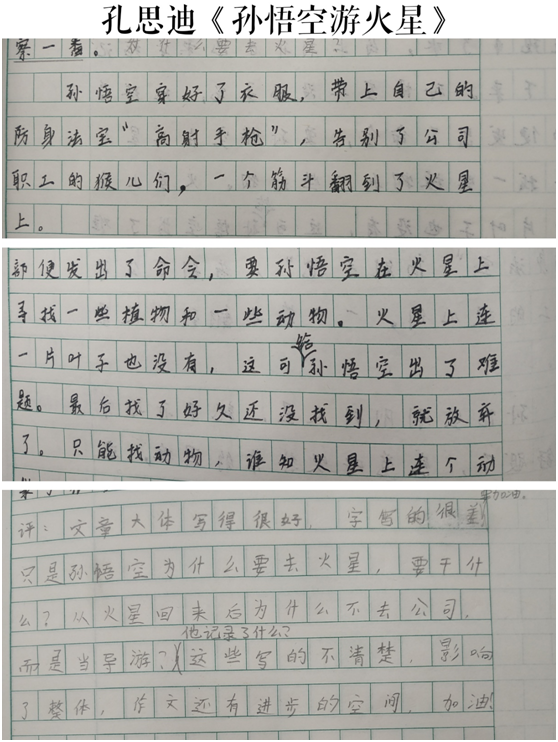 孔思迪《孙悟空游火星》
察一番。
孙悟空穿好了衣服，带上自己的
防身法宝“高射手枪”，告别了公司
职工的猴儿们，一个筋斗翻到了火星
上。
部便发出了命令，要孙悟空在火星上
寻找一些植物和一些动物。火星上连
一片叶子也没有，这可给孙悟空出了难
题。最后找了好久还没找到，就放弃
了。只能找动物，谁知火星上连个动
评：文章大体写得很好，字写的很差
只是孙悟空为什么要去火星，要干什
么？从火星回来后为什么不去公司，
他记录了什么？
而是当导游？这些写的不清楚，影响
了整体，作文还有进步的空间，加油！